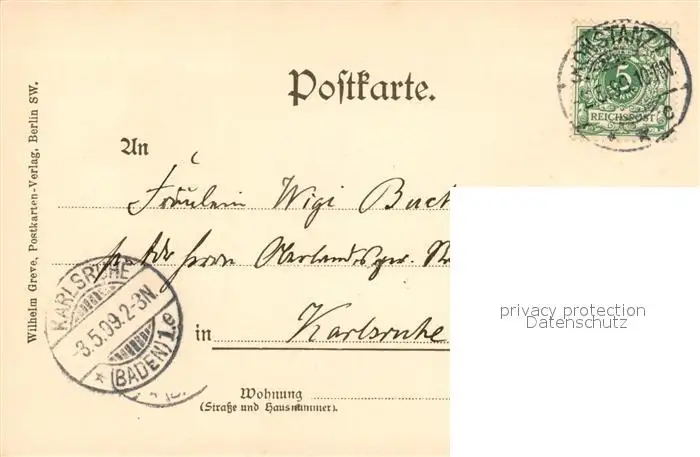 Postkarte.
KONSTANZ
5
REICHSPOST
C
An
Fräulein Wigi
Herrn Oberlandsger.
KARLSRUHE
3.5.99.2-3N.
(BADEN) 1.e
in Karlsruhe
Wohnung
(Straße und Hausnummer).
Wilhelm Greve, Postkarten-Verlag, Berlin SW.
privacy protection
Datenschutz